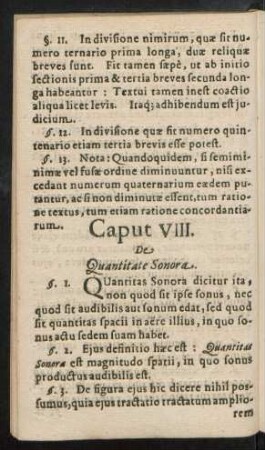 §. 11. In divisione nimirum, quæ sit nu-
mero ternario prima longa, duæ reliquæ
breves sunt. Fit tamen sæpè, ut ab initio
sectionis prima & tertia breves secunda lon-
ga habeantur : Textui tamen inest coactio
aliqua licet levis. Itaq; adhibendum est ju-
dicium.
§. 12. In divisione quæ sit numero quin-
tenario etiam tertia brevis esse potest.
§. 13. Nota: Quandoquidem, si semimi-
nimæ vel fusæ ordine diminuuntur, nisi ex-
cedant numerum quaternarium eædem pu-
tantur, ac si non diminutæ essent, tum ratio-
ne textus, tum etiam ratione concordantia-
rum.
Caput VIII.
De
Quantitate Sonora.
§. 1. Quantitas Sonora dicitur ita,
non quod sit ipse sonus, nec
quod sit audibilis aut sonum edat, sed quod
sit quantitas spacii in aëre illius, in quo so-
nus actu sedem suam habet.
§. 2. Ejus definitio hæc est : Quantitas
Sonora est magnitudo spatii, in quo sonus
productus audibilis est.
§. 3. De figura ejus hic dicere nihil pos-
sumus, quia ejus tractatio tractatum amplio-
rem